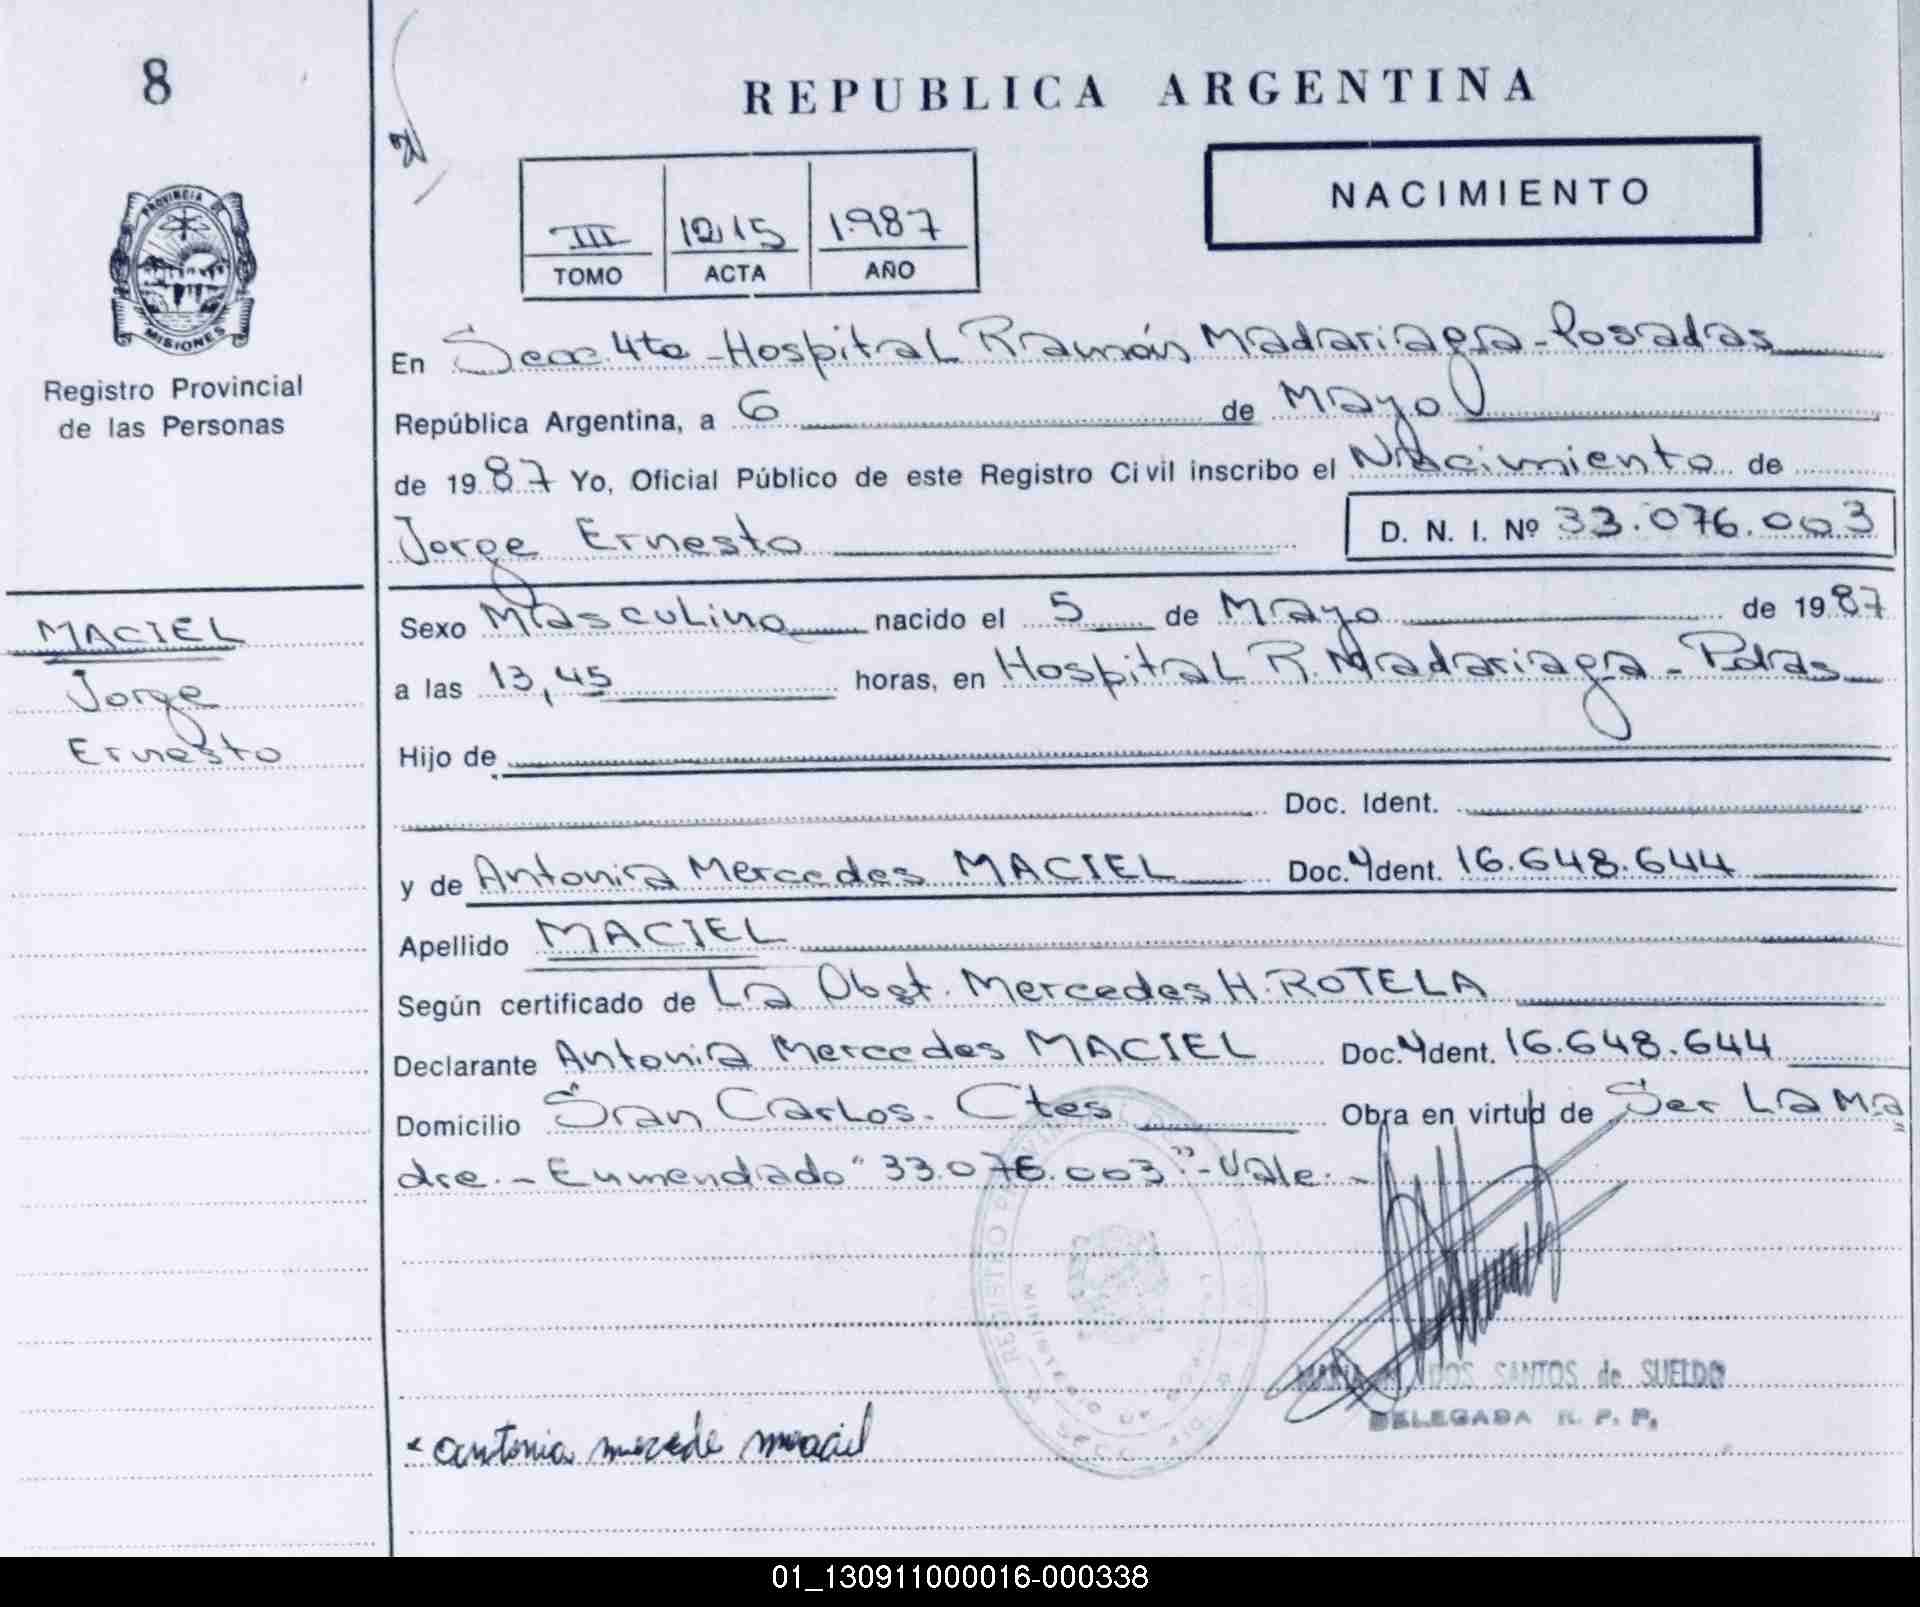 8
REPUBLICA ARGENTINA
NACIMIENTO
III 1215 1.987
TOMO ACTA AÑO
PROVINCIA DE
MISIONES
Registro Provincial
de las Personas
En Secc. 4ta - Hospital Ramón Madariaga - Posadas
República Argentina, a 6 de Mayo
de 1987 Yo, Oficial Público de este Registro Civil inscribo el Nacimiento de
Jorge Ernesto D. N. I. Nº 33.076.003
MACIEL
Jorge
Ernesto
Sexo Masculino nacido el 5 de Mayo de 1987
a las 13,45 horas, en Hospital R. Madariaga - Pdas
Hijo de
Doc. Ident.
y de Antonia Mercedes MACIEL Doc. Ident. 16.648.644
Apellido MACIEL
Según certificado de La Obst. Mercedes H. ROTELA
Declarante Antonia Mercedes MACIEL Doc. Ident. 16.648.644
Domicilio San Carlos. Ctes Obra en virtud de Ser La Ma
dre. - Enmendado "33.076.003" - Vale. -
REGISTRO
DOS SANTOS de SUELDO
DELEGADA R. P. P.
antonia mercede maciel
01_130911000016-000338